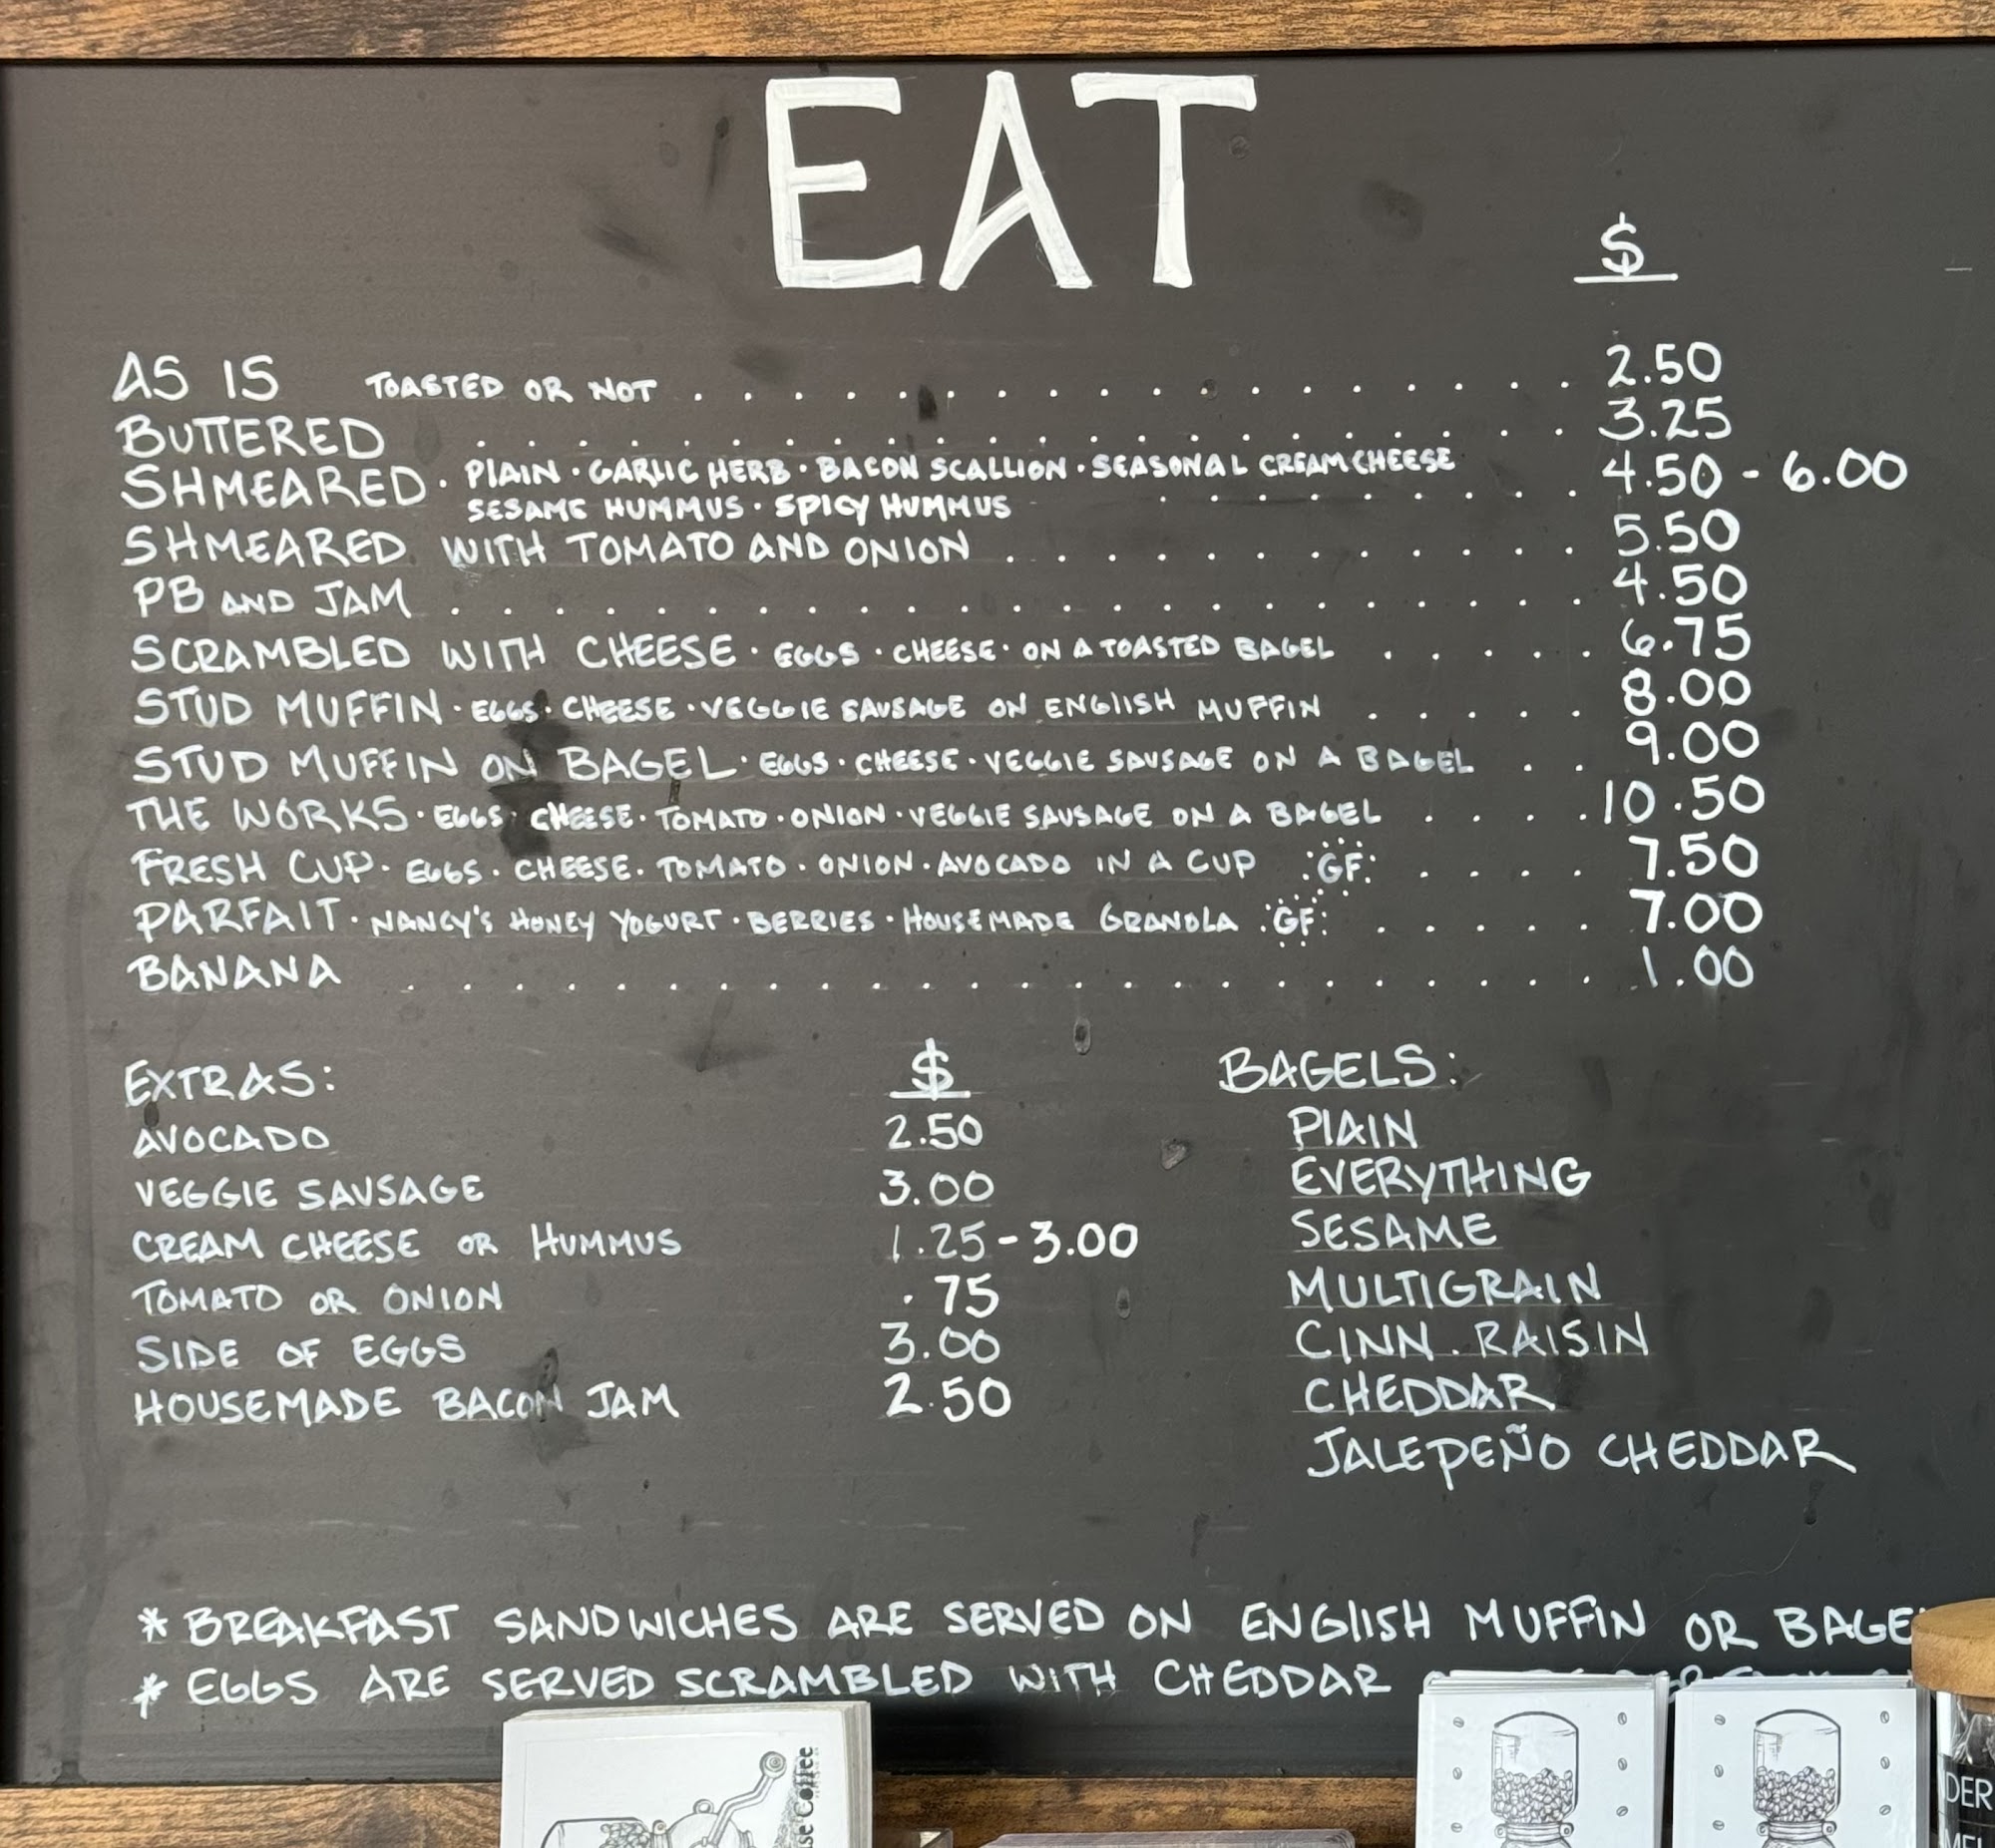 EAT
$
AS IS TOASTED OR NOT . . . . . . . . . . . . . . . . . . 2.50
BUTTERED . . . . . . . . . . . . . . . . . . . . . . 3.25
SHMEARED · PLAIN · GARLIC HERB · BACON SCALLION · SEASONAL CREAM CHEESE 4.50 - 6.00
SESAME HUMMUS · SPICY HUMMUS . . . . . . . . .
SHMEARED WITH TOMATO AND ONION . . . . . . . . . . . . 5.50
PB AND JAM . . . . . . . . . . . . . . . . . . . . . . 4.50
SCRAMBLED WITH CHEESE · EGGS · CHEESE · ON A TOASTED BAGEL . . . . . 6.75
STUD MUFFIN · EGGS · CHEESE · VEGGIE SAUSAGE ON ENGLISH MUFFIN . . . . . 8.00
STUD MUFFIN ON BAGEL · EGGS · CHEESE · VEGGIE SAUSAGE ON A BAGEL . . 9.00
THE WORKS · EGGS · CHEESE · TOMATO · ONION · VEGGIE SAUSAGE ON A BAGEL . . . . 10.50
FRESH CUP · EGGS · CHEESE · TOMATO · ONION · AVOCADO IN A CUP GF . . . . 7.50
PARFAIT · NANCY'S HONEY YOGURT · BERRIES · HOUSEMADE GRANOLA GF . . . . . 7.00
BANANA . . . . . . . . . . . . . . . . . . . . . . . . 1.00
EXTRAS: $
AVOCADO 2.50
VEGGIE SAUSAGE 3.00
CREAM CHEESE OR HUMMUS 1.25 - 3.00
TOMATO OR ONION .75
SIDE OF EGGS 3.00
HOUSEMADE BACON JAM 2.50
BAGELS:
PLAIN
EVERYTHING
SESAME
MULTIGRAIN
CINN. RAISIN
CHEDDAR
JALEPEÑO CHEDDAR
* BREAKFAST SANDWICHES ARE SERVED ON ENGLISH MUFFIN OR BAGE
* EGGS ARE SERVED SCRAMBLED WITH CHEDDAR
se Coffee
DER